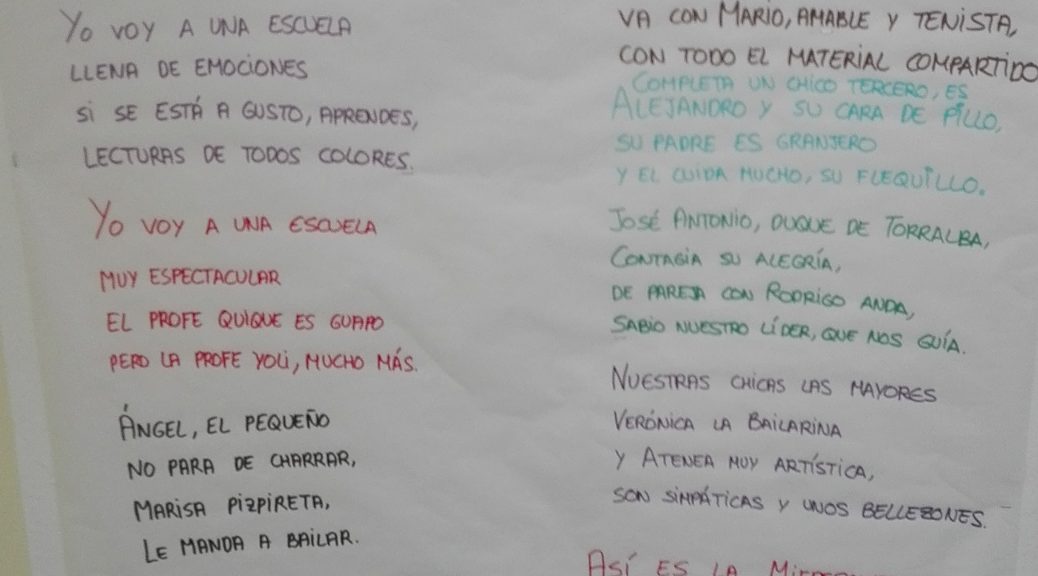 Yo VOY A UNA ESCUELA
LLENA DE EMOCIONES
Si SE ESTÁ A GUSTO, APRENDES,
LECTURAS DE TODOS COLORES.
Yo VOY A UNA ESCUELA
MUY ESPECTACULAR
EL PROFE QUIQUE ES GUAPO
PERO LA PROFE YOLI, MUCHO MÁS.
ÁNGEL, EL PEQUEÑO
NO PARA DE CHARRAR,
MARISA PIZPIRETA,
LE MANDA A BAILAR.
VA CON MARIO, AMABLE Y TENISTA,
CON TODO EL MATERIAL COMPARTIDO
COMPLETA UN CHICO TERCERO, ES
ALEJANDRO Y SU CARA DE PILLO,
SU PADRE ES GRANJERO
Y EL CUIDA MUCHO, SU FLEQUILLO.
JOSÉ ANTONIO, DUQUE DE TORRALBA,
CONTAGIA SU ALEGRÍA,
DE PAREJA CON RODRIGO ANDA,
SABIO NUESTRO LÍDER, QUE NOS GUÍA.
NUESTRAS CHICAS LAS MAYORES
VERÓNICA LA BAILARINA
Y ATENEA MUY ARTÍSTICA,
SON SIMPÁTICAS Y UNOS BELLEZONES.
ASÍ ES LA